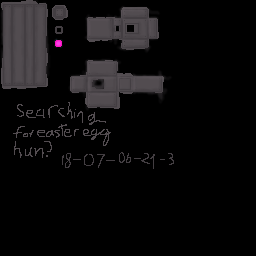 Searching
for easter egg
hun?
18-07-06-21-3